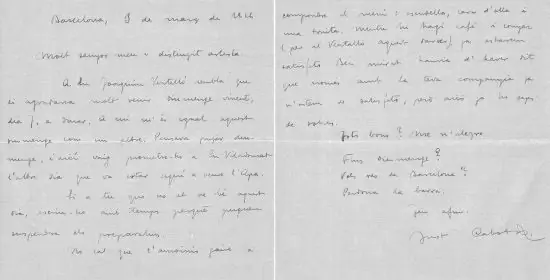 Barcelona, 3 de març de 19
Molt senyor meu i distingit artista
A Joaquim Ventalló sembla que
li agradaria molt venir diumenge vinent,
dia 7, a dinar. A mi m'és igual aquest
diumenge com un altre. Pensava pujar diu-
menge, i així vaig prometre-ho a En Viladomat
l'altre dia que va estar aquí a veure l'expo.
Si a tu que no et va bé aquest
dia, escriu-ho amb temps perquè puguem
suspendre els preparatius.
No cal que t'amoïnis gaire a
compondre el menú i escudella, carn d'olla i
una truita. Mentre hi hagi cafè i conyac
(per el Ventalló aquest darrer) ja estarem
satisfets. Ben mirat hauria d'haver dit
que només amb la teva companyia ja
n'estem de satisfets, però això ja ho saps
de sobres.
Tots bons? Me n'alegro.
Fins diumenge?
Vols res de Barcelona?
Perdona la barra.
Just Cabot